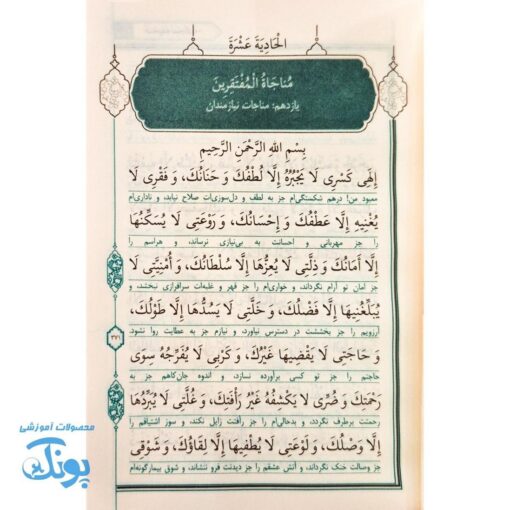 الْحَادِيَةَ عَشْرَةَ
مُنَاجَاةُ الْمُفْتَقِرِينَ
یازدهم: مناجات نیازمندان
بِسْمِ اللهِ الرَّحْمَنِ الرَّحِيمِ
إِلَهِي كَسْرِي لَا يَجْبُرُهُ إِلَّا لُطْفُكَ وَ حَنَانُكَ، وَ فَقْرِي لَا
معبود من! درهم شکستگی‌ام جز به لطف و دل‌سوزی‌ات صلاح نیابد، و ناداری‌ام
يُغْنِيهِ إِلَّا عَطْفُكَ وَ إِحْسَانُكَ، وَ رَوْعَتِي لَا يُسَكِّنُهَا
را جز مهربانی و احسانت به بی‌نیازی نرساند، و هراسم را
إِلَّا أَمَانُكَ وَ ذِلَّتِي لَا يُعِزُّهَا إِلَّا سُلْطَانُكَ، وَ أُمْنِيَّتِي لَا
جز امان تو آرام نگرداند، و خواری‌ام را جز قهر و غلبه‌ات سرافرازی نبخشد، و
يُبَلِّغُنِيهَا إِلَّا فَضْلُكَ، وَ خَلَّتِي لَا يَسُدُّهَا إِلَّا طَوْلُكَ،
آرزویم را جز بخششت در دسترس نیاورد، و نیازم جز به عطایت روا نشود.
وَ حَاجَتِي لَا يَقْضِيهَا غَيْرُكَ، وَ كَرْبِي لَا يُفَرِّجُهُ سِوَى
حاجتم را جز تو کسی برآورده نسازد، و اندوه جان‌کاهم جز به
رَحْمَتِكَ وَ ضُرِّي لَا يَكْشِفُهُ غَيْرُ رَأْفَتِكَ، وَ غُلَّتِي لَا يُبَرِّدُهَا
رحمتت برطرف نگردد، و بدحالی‌ام را جز رأفتت زایل نکند، و سوز اشتیاقم را
إِلَّا وَصْلُكَ، وَ لَوْعَتِي لَا يُطْفِيهَا إِلَّا لِقَاؤُكَ، وَ شَوْقِي
جز وصالت خنک نگرداند، و آتش عشقم را جز دیدنت فرو ننشاند، و شوق بیمارگونه‌ام
۳۷۱
محصولات آموزشی
پونک